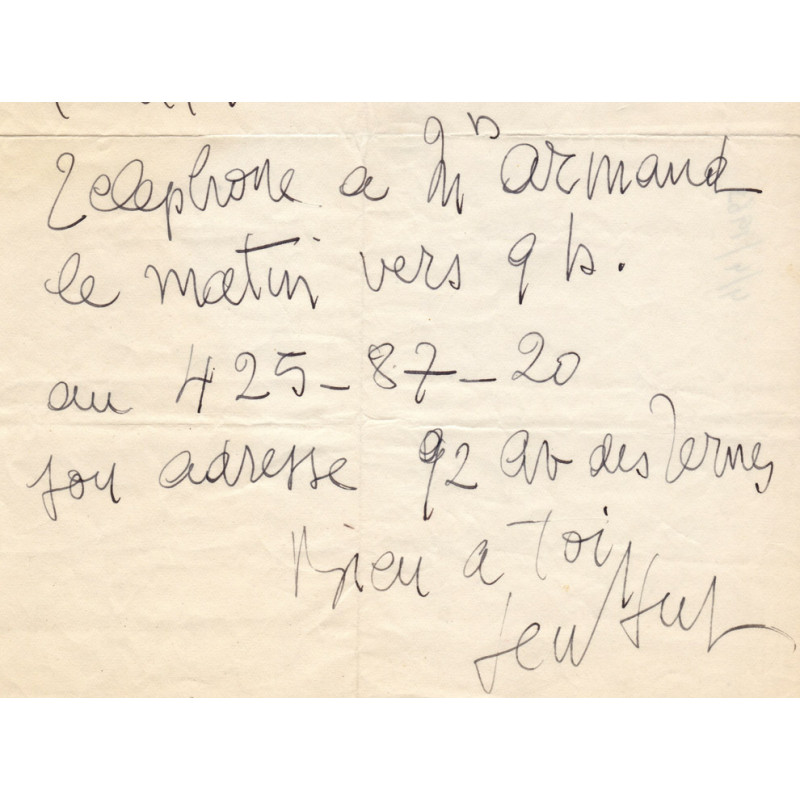 telephone a Mr armand
le matin vers 9 h.
au 425-87-20
son adresse 92 av des Ternes
Bien a toi